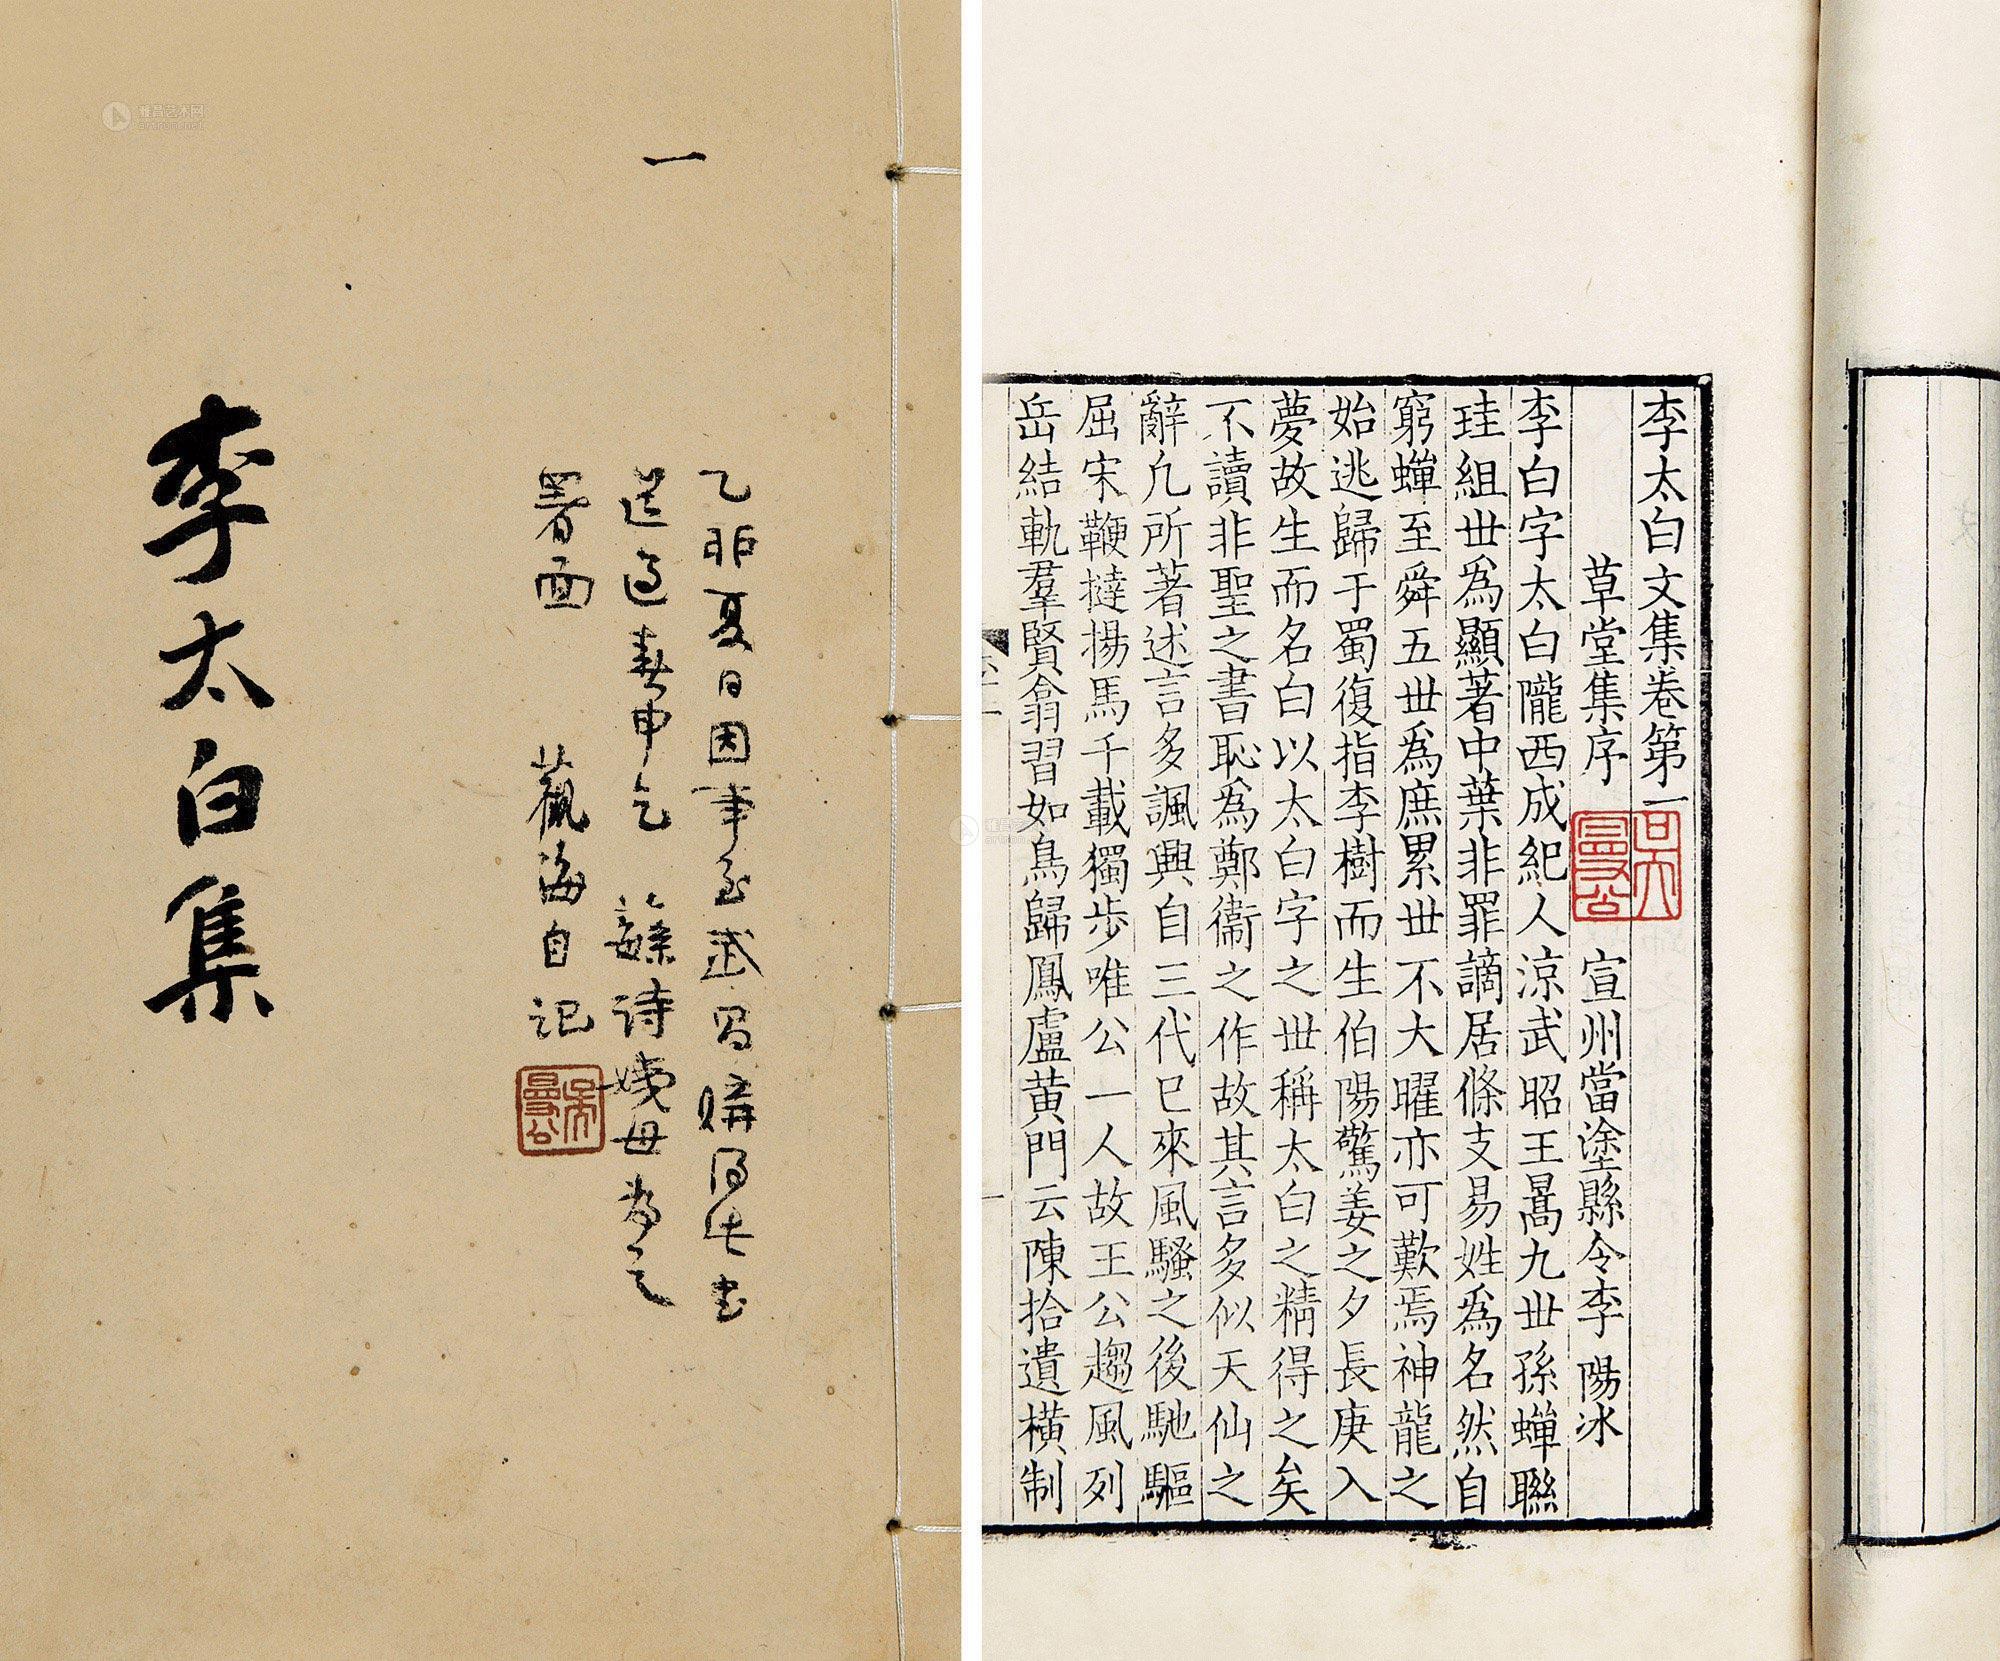 一
李太白集
乙卯夏日因事至武昌購得此书
道過春申乞 蘇诗姨母为之
署面 觀海自记
吴曼公
李太白文集卷第一
草堂集序 宣州當塗縣令李陽冰
李白字太白隴西成紀人涼武昭王暠九丗孫蟬聯
珪組丗爲顯著中葉非罪謫居條支易姓爲名然自
窮蟬至舜五丗爲庶累丗不大曜亦可歎焉神龍之
始逃歸于蜀復指李樹而生伯陽驚姜之夕長庚入
夢故生而名白以太白字之丗稱太白之精得之矣
不讀非聖之書恥爲鄭衞之作故其言多似天仙之
辭凢所著述言多諷興自三代已來風騷之後馳驅
屈宋鞭撻揚馬千載獨步唯公一人故王公趨風列
岳結軌羣賢翕習如鳥歸鳳盧黄門云陳拾遺横制
吴曼公
雅昌艺术网
artron.net